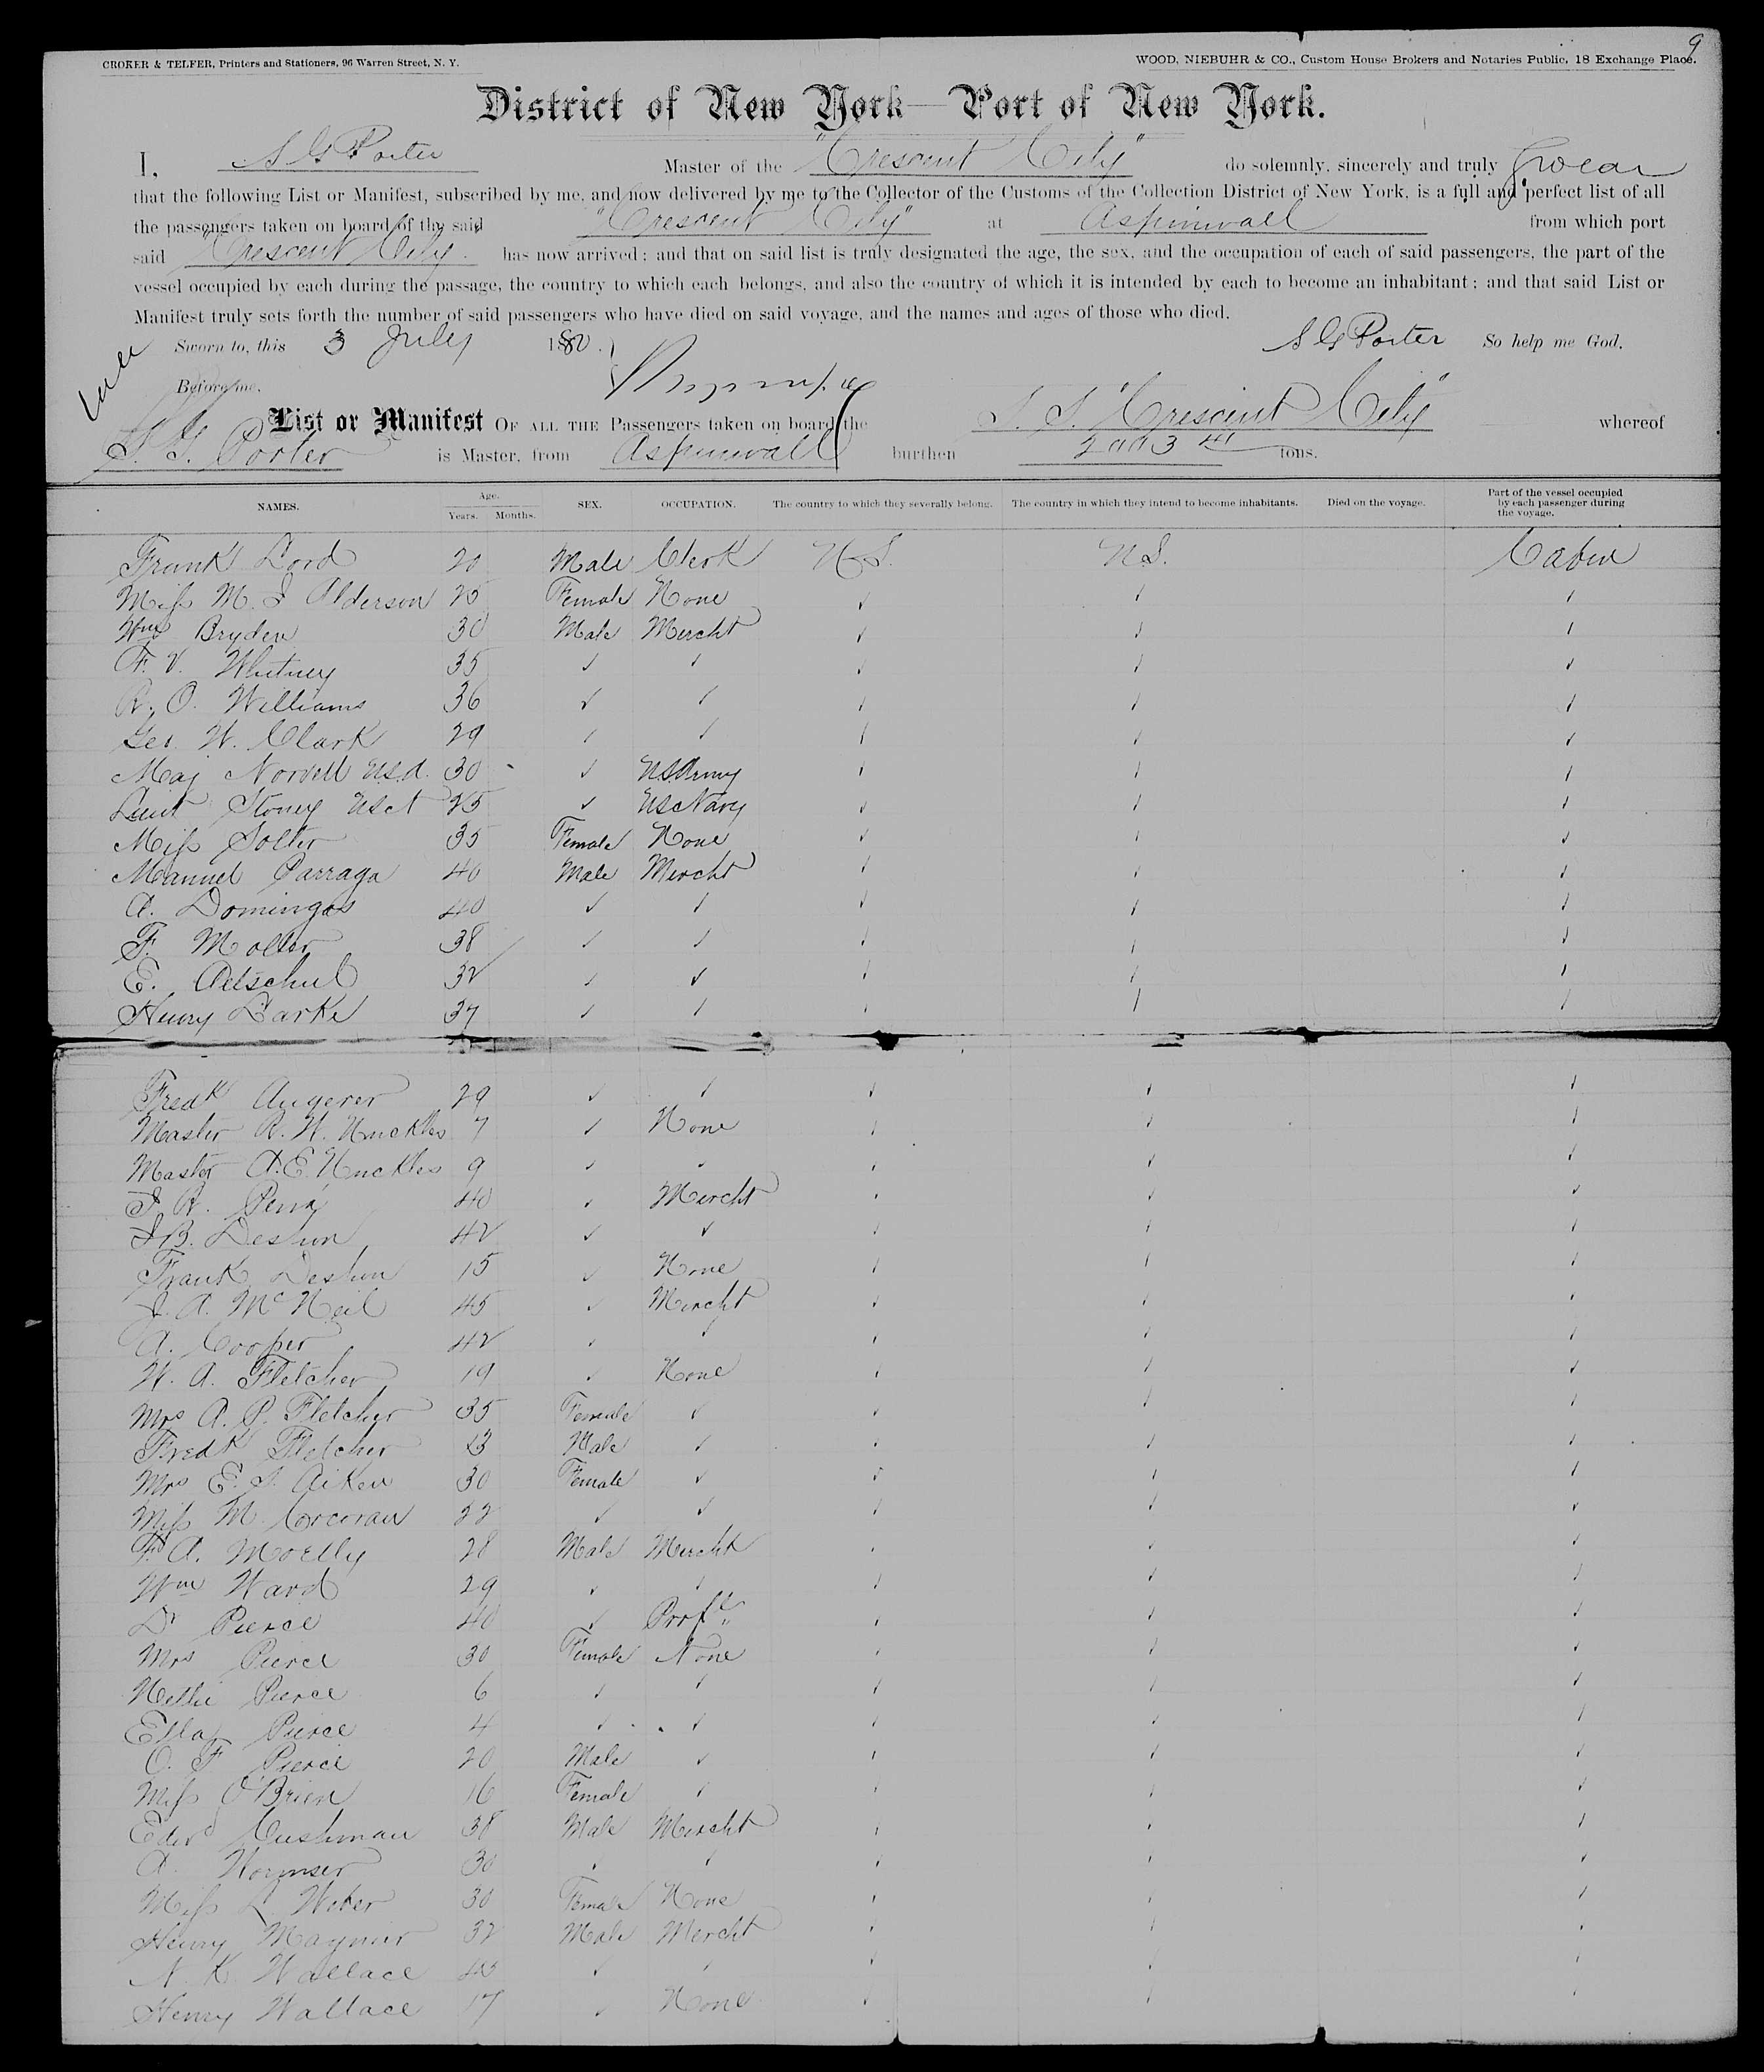 9
CROKER & TELFER, Printers and Stationers, 96 Warren Street, N. Y. WOOD, NIEBUHR & CO., Custom House Brokers and Notaries Public, 18 Exchange Place.
District of New York—Port of New York.
I, S G Porter Master of the "Crescent City" do solemnly, sincerely and truly swear
that the following List or Manifest, subscribed by me, and now delivered by me to the Collector of the Customs of the Collection District of New York, is a full and perfect list of all
the passengers taken on board of the said "Crescent City" at Aspinwall from which port
said "Crescent City" has now arrived; and that on said list is truly designated the age, the sex, and the occupation of each of said passengers, the part of the
vessel occupied by each during the passage, the country to which each belongs, and also the country of which it is intended by each to become an inhabitant; and that said List or
Manifest truly sets forth the number of said passengers who have died on said voyage, and the names and ages of those who died.
Sworn to, this 3 July 1880. S G Porter So help me God.
Before me,
List or Manifest OF ALL THE Passengers taken on board the S. S. "Crescent City" whereof
S. G. Porter is Master, from Aspinwall burthen tons.
NAMES. Age. Years. Months. SEX. OCCUPATION. The country to which they severally belong. The country in which they intend to become inhabitants. Died on the voyage. Part of the vessel occupied by each passenger during the voyage.
Frank Lord 20 Male Clerk U.S. U.S. Cabin
Miss M. J Alderson 25 Female None ✓ ✓ ✓
Wm Bryden 30 Male Mercht ✓ ✓ ✓
F. V. Whitney 35 ✓ ✓ ✓ ✓ ✓
R. O. Williams 36 ✓ ✓ ✓ ✓ ✓
Geo. W. Clark 29 ✓ ✓ ✓ ✓ ✓
Maj Norvell U.S.A. 30 ✓ US Army ✓ ✓ ✓
Lieut Stoney 25 ✓ US Navy ✓ ✓ ✓
Miss Solter 35 Female None ✓ ✓ ✓
Manuel Parraga 40 Male Mercht ✓ ✓ ✓
A. Domingos 40 ✓ ✓ ✓ ✓ ✓
F. Moller 38 ✓ ✓ ✓ ✓ ✓
E. Altschul 32 ✓ ✓ ✓ ✓ ✓
Henry Larke 37 ✓ ✓ ✓ ✓ ✓
Fredk Augerer 29 ✓ ✓ ✓ ✓ ✓
Master R. W. Nuckles 7 ✓ None ✓ ✓ ✓
Master A. E. Nuckles 9 ✓ ✓ ✓ ✓ ✓
J. R. 40 ✓ Mercht ✓ ✓ ✓
J B. Deshon 42 ✓ ✓ ✓ ✓ ✓
Frank Deshon 15 ✓ None ✓ ✓ ✓
J. A. McNeil 45 ✓ Mercht ✓ ✓ ✓
A. Cooper 42 ✓ ✓ ✓ ✓ ✓
W. A. Fletcher 19 ✓ None ✓ ✓ ✓
Mrs A. P. Fletcher 35 Female ✓ ✓ ✓ ✓
Fredk Fletcher 13 Male ✓ ✓ ✓ ✓
Mrs E. S. Aiken 30 Female ✓ ✓ ✓ ✓
Miss M. Corcoran 22 ✓ ✓ ✓ ✓ ✓
F. A. Moelly 28 Male Mercht ✓ ✓ ✓
Wm Ward 29 ✓ ✓ ✓ ✓ ✓
Dr Pierce 40 ✓ ✓ ✓ ✓
Mrs Pierce 30 Female None ✓ ✓ ✓
Nettie Pierce 6 ✓ ✓ ✓ ✓ ✓
Ella Pierce 4 ✓ ✓ ✓ ✓ ✓
O. F Pierce 20 Male ✓ ✓ ✓ ✓
Miss O'Brien 16 Female ✓ ✓ ✓ ✓
Edwd Cushman 38 Male Mercht ✓ ✓ ✓
A. Wormser 30 ✓ ✓ ✓ ✓ ✓
Miss L. Weber 30 Female None ✓ ✓ ✓
Henry Maynor 32 Male Mercht ✓ ✓ ✓
N. K. Wallace 40 ✓ ✓ ✓ ✓ ✓
Henry Wallace 17 ✓ None ✓ ✓ ✓